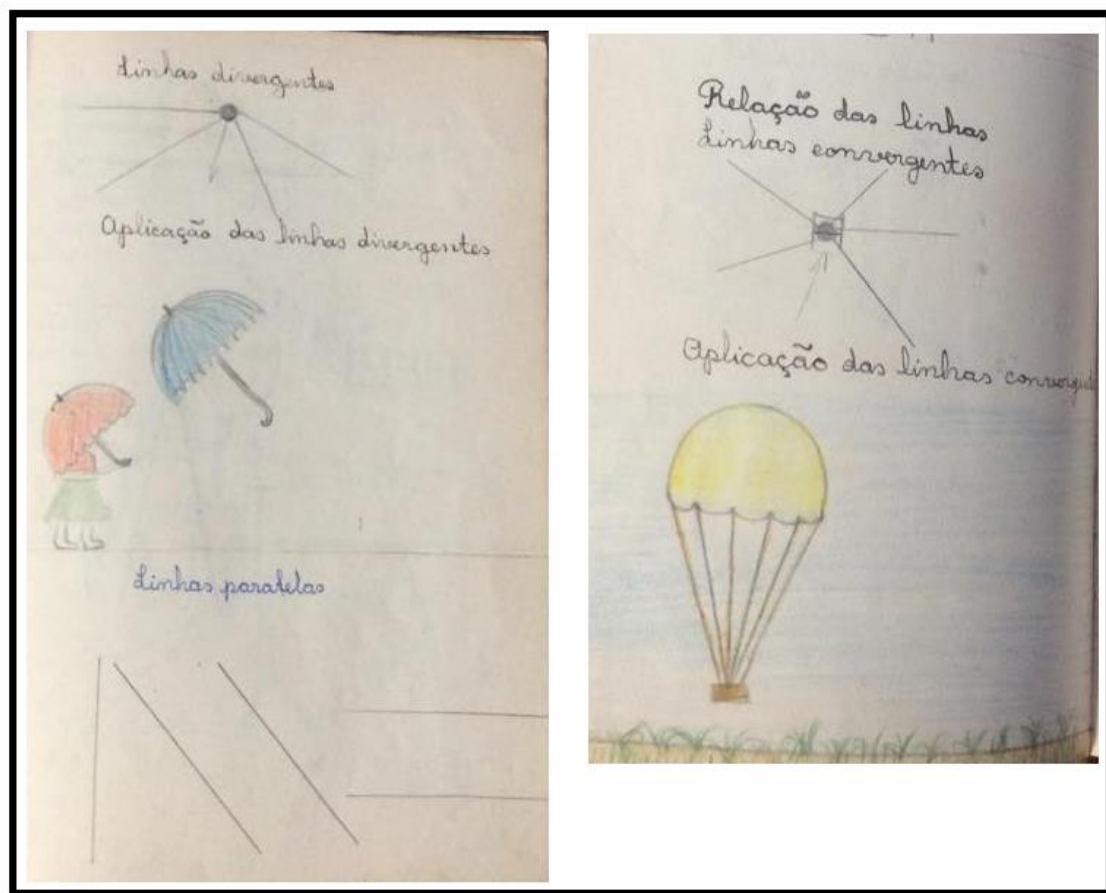 Linhas divergentes
Aplicação das linhas divergentes
Linhas paralelas
Relação das linhas
Linhas convergentes
Aplicação das linhas